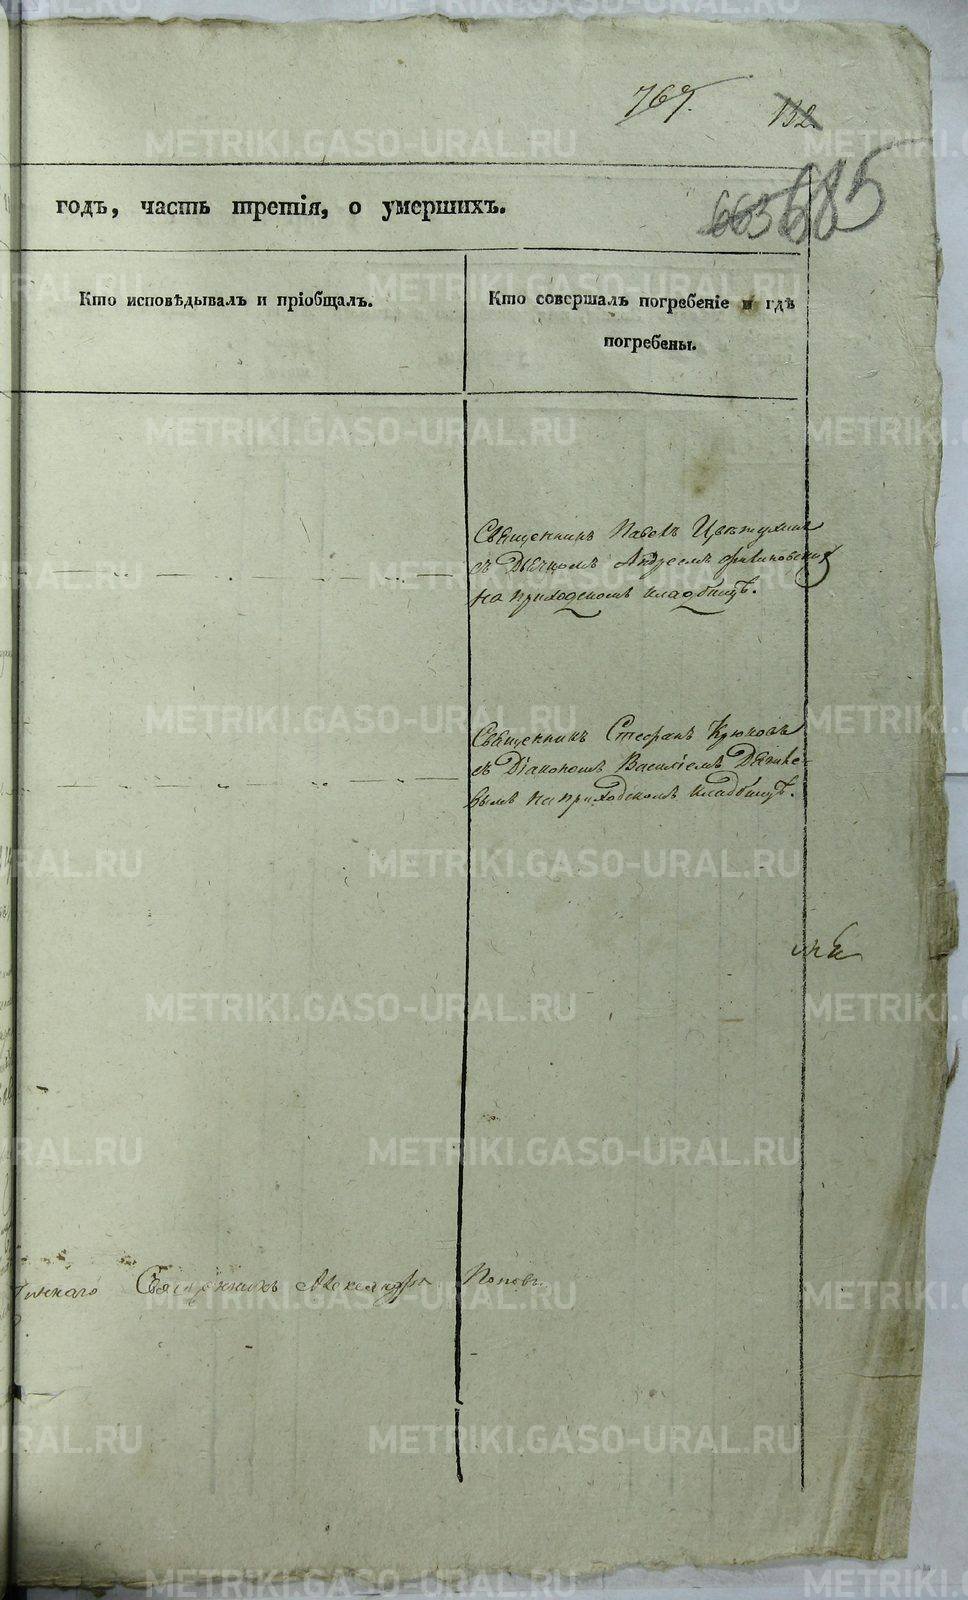 769.
132
годъ, часть третія, о умершихъ.
663 685
Кто исповѣдывалъ и пріобщалъ.
Кто совершалъ погребеніе и гдѣ
погребены.
Священникъ Павелъ Цвѣтухинъ
съ Дьячкомъ Андреемъ
на приходскомъ кладбищѣ.
Священникъ Стефанъ Крюковъ
съ Діакономъ Василіемъ
вымъ на приходскомъ кладбищѣ.
Священникъ Александръ Поповъ.
METRIKI.GASO-URAL.RU